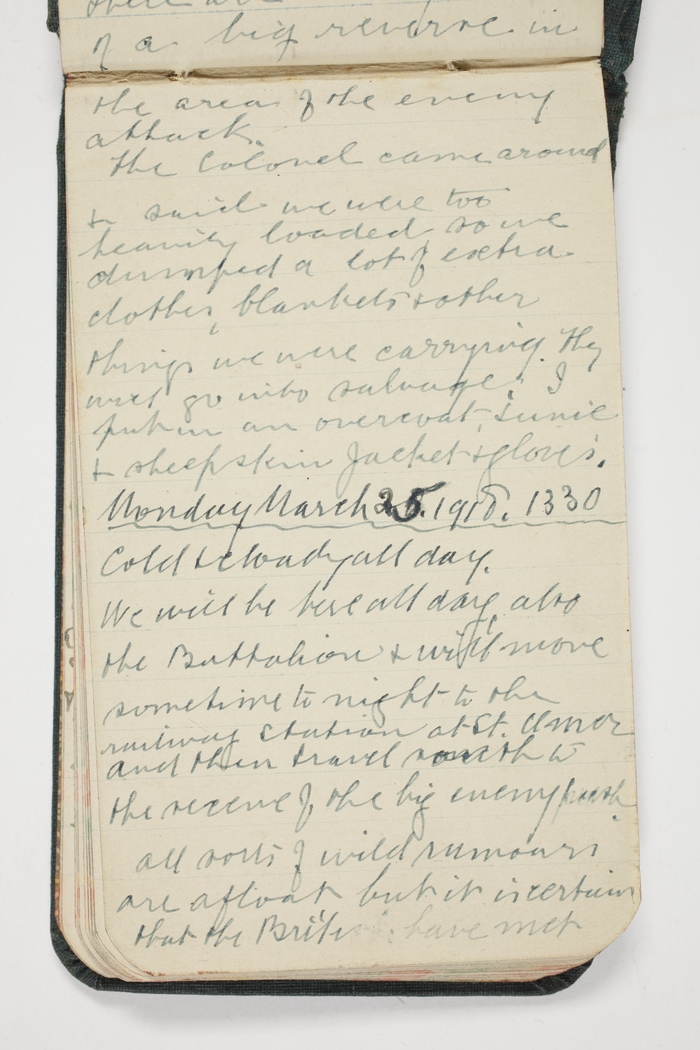 of a big reverse in
the area of the enemy
attack.
The Colonel came around
& said we were too
heavily loaded so we
dumped a lot of extra
clothes, blankets & other
things we were carrying. They
will go into salvage. I
put in an overcoat, tunic
& sheepskin Jacket & gloves.
Monday March 25. 1918. 1330
Cold & cloudy all day.
We will be here all day, also
the Battalion & will move
sometime to night to the
railway station at St. Omer
and then travel south to
the scene of the big enemy push.
all sorts of wild rumours
are afloat but it is certain
that the British have met